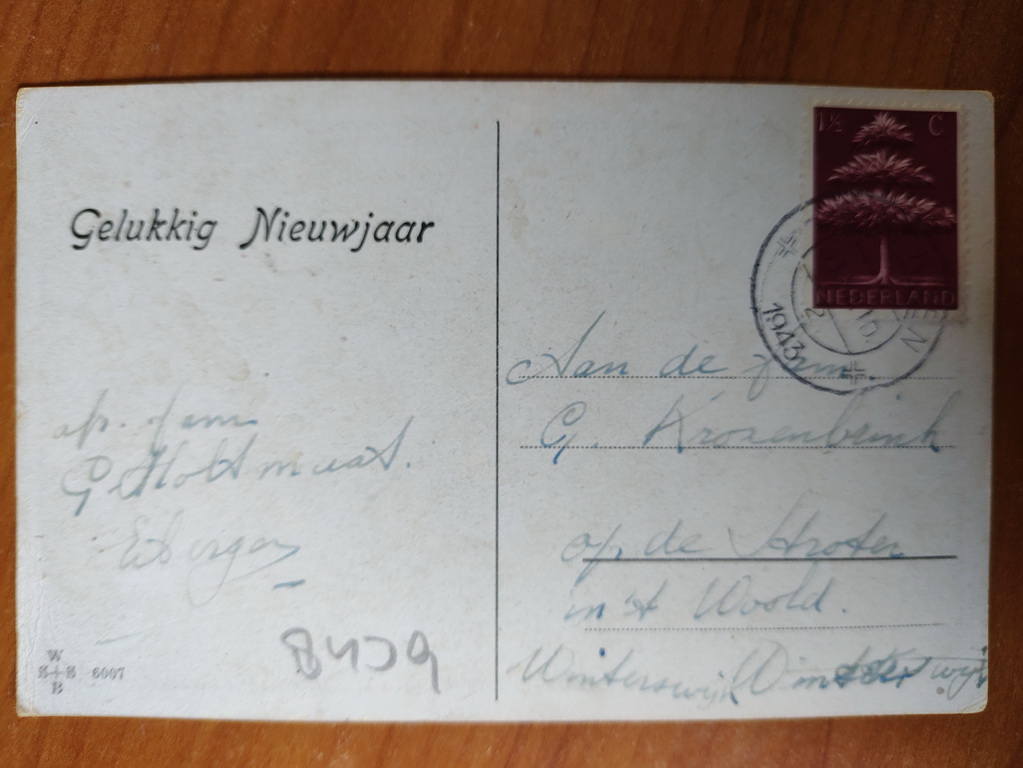 Gelukkig Nieuwjaar
1½ C
NEDERLAND
1943
Aan de fam
G. Krosenbrink
op de Stroten
in 't Woold.
Winterswijk Winterswijk
fam
G Holtmaat.
Eibergen
W
S+S 6007
B